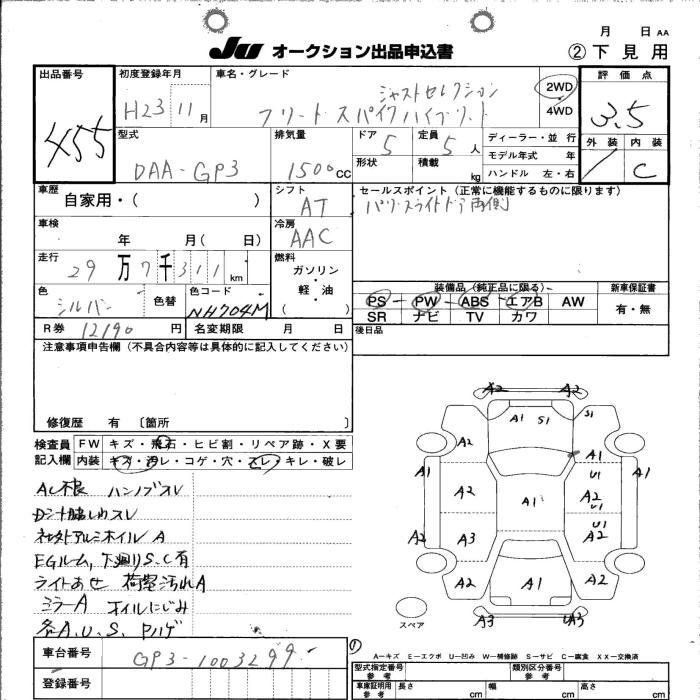 月 日 AA
JU オークション出品申込書
② 下見用
出品番号 455
初度登録年月 H23 11月
車名・グレード
ジャストセレクション
フリード スパイク ハイブリッド
2WD・4WD
評価点 3.5
外装 内装 C
型式 DAA-GP3
排気量 1500CC
ドア 5
形状
定員 5人
積載 kg
ディーラー・並行
モデル年式 年
ハンドル 左・右
車歴 自家用・( )
シフト AT
セールスポイント(正常に機能するものに限ります)
パワースライドドア両側
車検 年 月( 日)
冷房 AAC
走行 29万7千311km
燃料 ガソリン・軽・油( )
色 シルバー 色替
色コード NH704M
装備品(純正品に限る)
PS PW ABS エアB AW
SR ナビ TV カワ
新車保証書 有・無
R券 12190円
名変期限 月 日
後日品
注意事項申告欄(不具合内容等は具体的に記入してください)
修復歴 有〔箇所 〕
検査員記入欄
FW キズ・飛石・ヒビ割・リペア跡・X要
内装 キズ・汚レ・コゲ・穴・スレ・キレ・破レ
AC不良 ハンノブスレ
Dシート脇しわスレ
社外アルミホイルA
EGルーム,下廻りS.C有
ライトあせ 荷室汚れA
ミラーA オイルにじみ
各A.U.S. Pハゲ
A2 A2
A1 S1 S1
A2 A1
A1 U1 A1
A2 A1 A2
U1
A2 A3 A2
A2 A1 A2
A3 UA3
スペア
車台番号 GP3-1003299
登録番号
A-キズ E-エクボ U-凹み W-補修跡 S-サビ C-腐食 XX-交換済
型式指定番号 参考
類別区分番号 参考
車庫証明用 参考 長さ cm 幅 cm 高さ cm